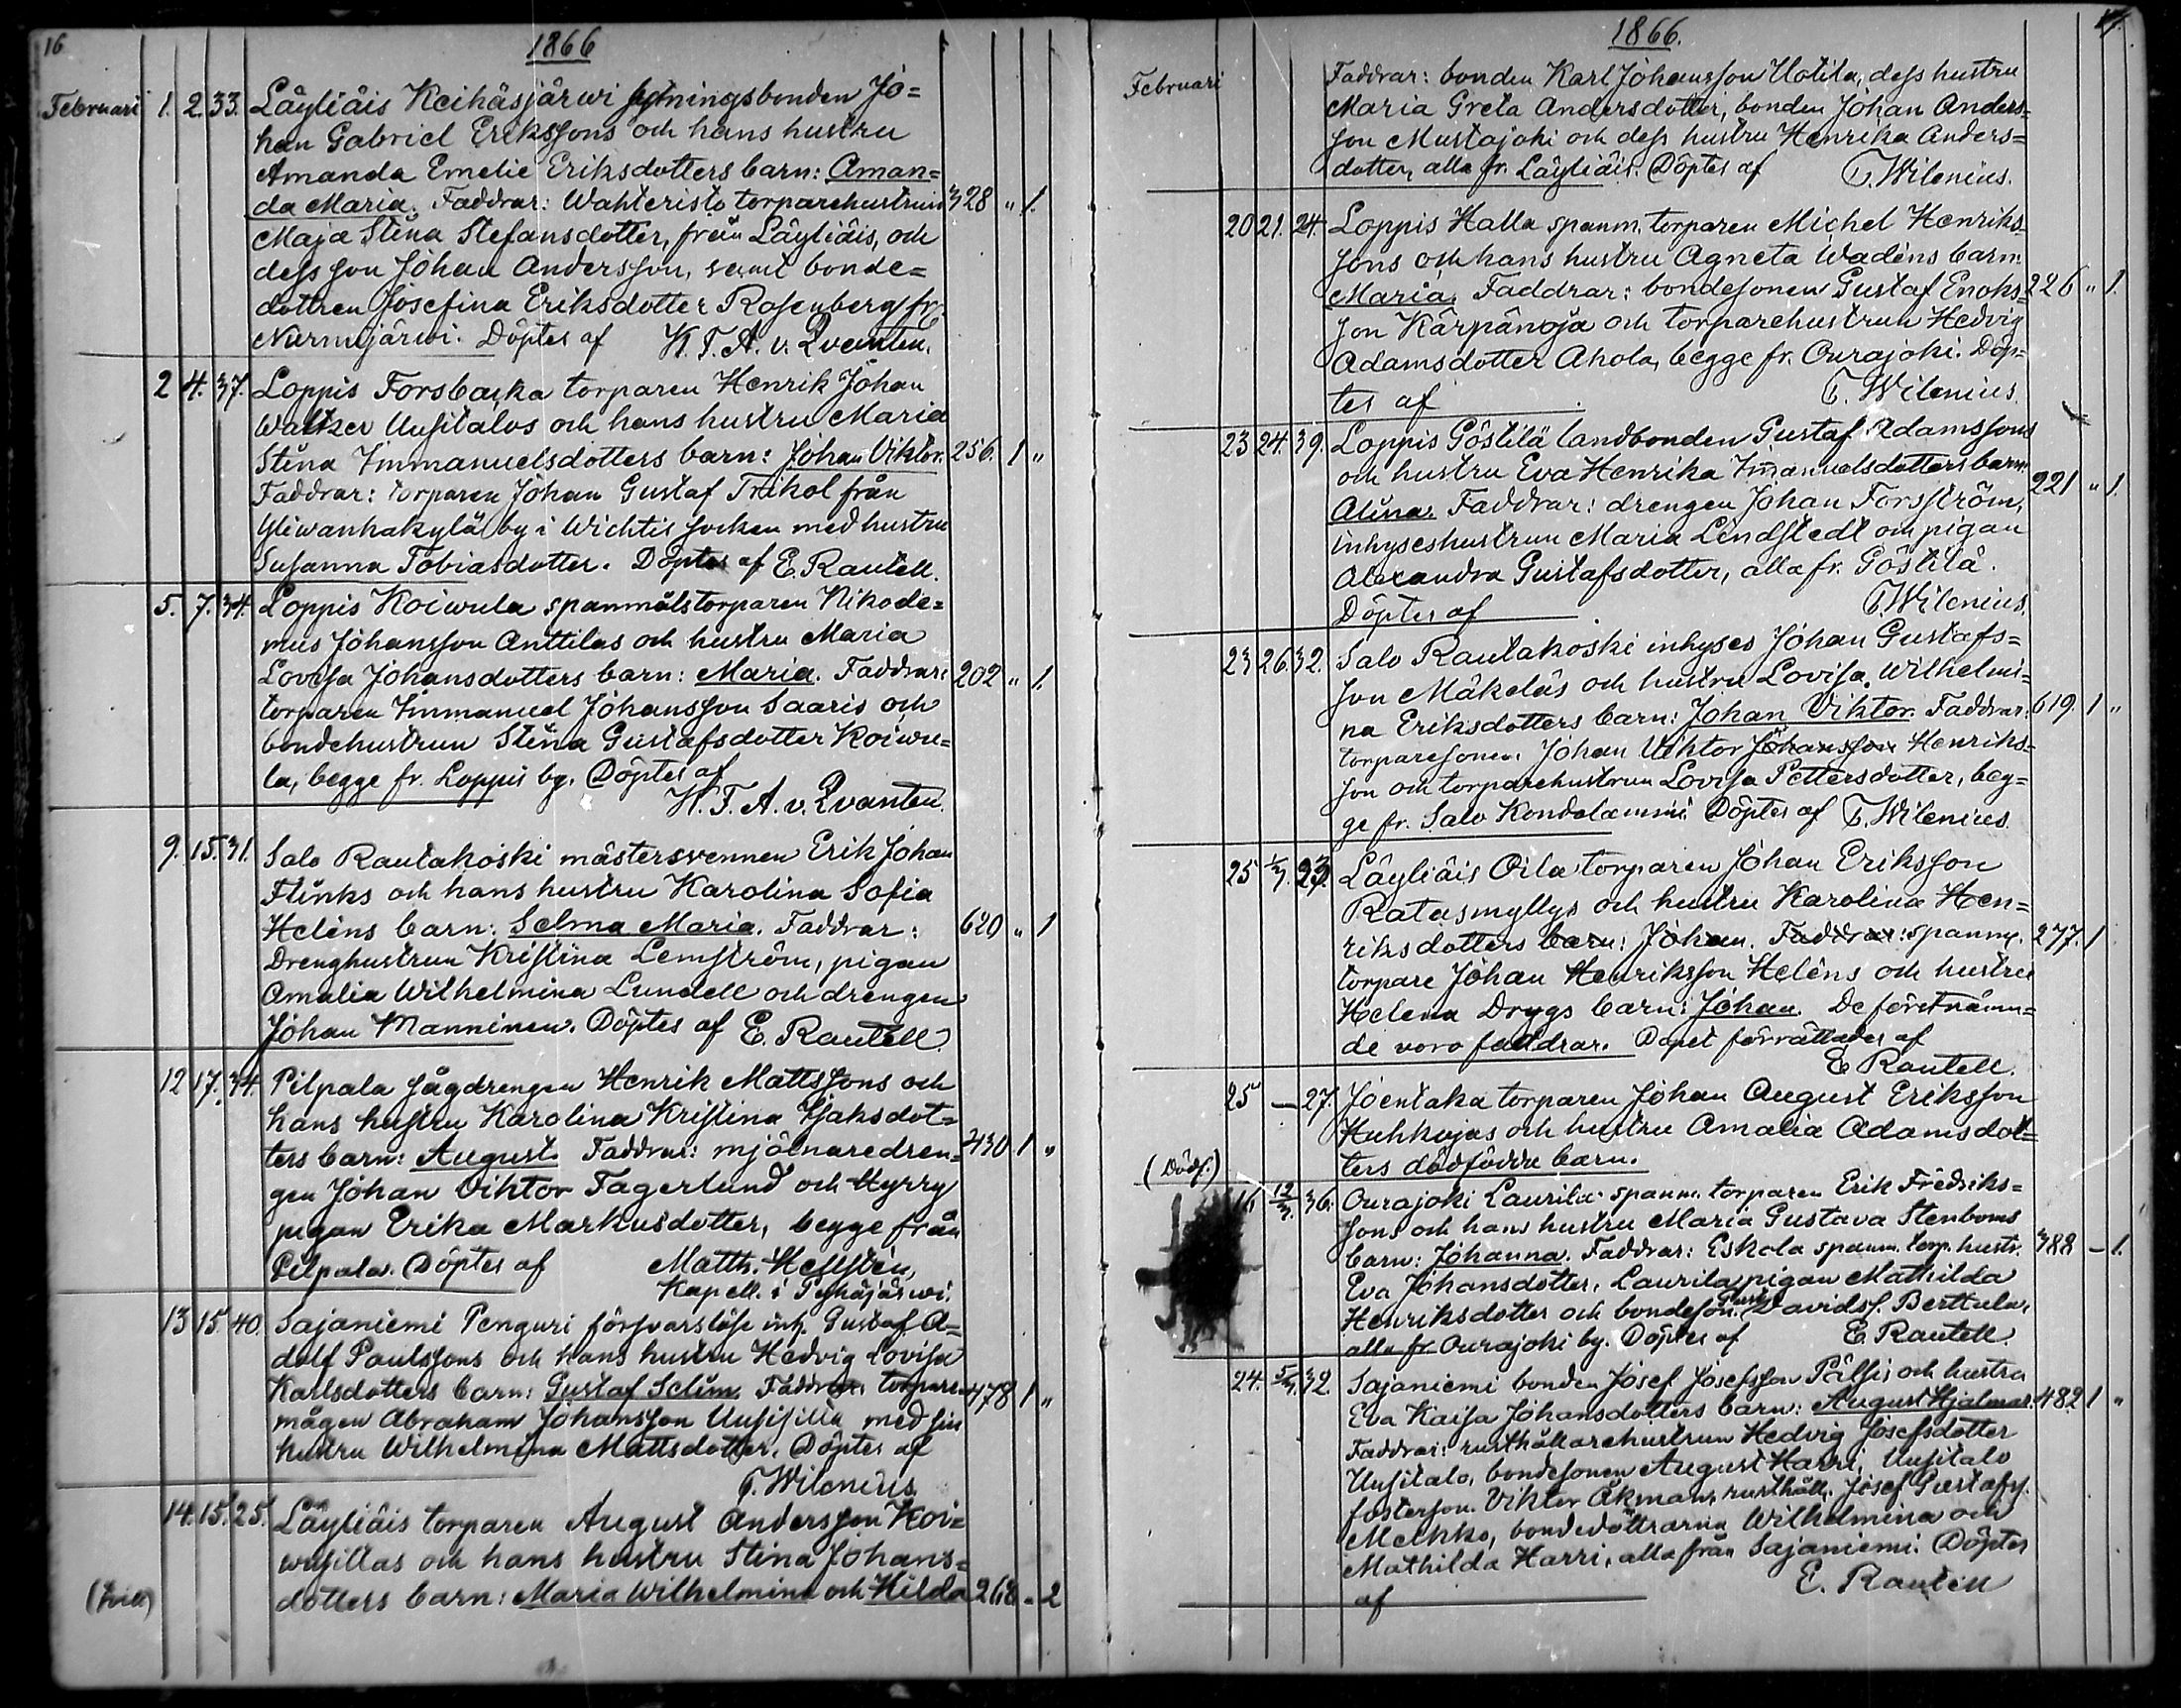 16
1866
Februari 1. 2. 33. Läyliäis Keihäsjärwi lytningsbonden Jo=
han Gabriel Erikssons och hans hustru
Amanda Emelie Eriksdotters barn: Aman=
da Maria. Faddrar: Wahteristo torparehustrun 328 " 1.
Maja Stina Stefansdotter, från Läyliäis, och
dess son Johan Andersson, samt bonde=
dottren Josefina Eriksdotter Rosenberg fr.
Nurmijärwi. Döptes af K. T. A. v. Qvanten.
2 4. 37. Loppis Forsbacka torparen Henrik Johan
Walter Uusitalos och hans hustru Maria
Stina Immanuelsdotters barn: Johan Viktor. 256. 1 "
Faddrar: torparen Johan Gustaf Trikol från
Yliwanhakylä by i Wichtis socken med hustru
Susanna Tobiasdotter. Döptes af E. Rautell.
5. 7. 34. Loppis Koiwula spanmålstorparen Nikode=
mus Johansson Anttilas och hustru Maria
Lovisa Johansdotters barn: Maria. Faddrar: 202 " 1.
torparen Immanuel Johansson Saaris och
bondehustrun Stina Gustafsdotter Koiwu=
la, begge fr. Loppis by. Döptes af
K. T. A. v. Qvanten.
9. 15. 31. Salo Rautakoski mästersvennen Erik Johan
Flinks och hans hustru Karolina Sofia
Heléns barn: Selma Maria. Faddrar: 620 " 1
Drenghustrun Kristina Lemström, pigan
Amalia Wilhelmina Lundell och drengen
Johan Manninen. Döptes af E. Rautell.
12 17. 34. Pilpala sågdrengen Henrik Mattssons och
hans hustru Karolina Kristina Isaksdot=
ters barn: August. Faddrar: mjölnaredren= 430 1 "
gen Johan Viktor Fagerlund och Hyrry
pigan Erika Markusdotter, begge från
Pilpala. Döptes af Matth. Hellstén,
Kapell. i Pyhäjärwi.
13 15. 40. Sajaniemi Penguri försvarslöse inh. Gustaf A=
dolf Paulssons och hans hustru Hedvig Lovisa
Karlsdotters barn: Gustaf Selim. Faddrar: torpare 478 1 "
mågen Abraham Johansson Uusisilla med sin
hustru Wilhelmina Mattsdotter. Döptes af
T. Wilenius.
14. 15. 25. Läyliäis torparen August Andersson Koi=
wusillas och hans hustru Stina Johans=
dotters barn: Maria Wilhelmina och Hilda 268 - 2
17.
1866.
Februari
Faddrar: bonden Karl Johansson Uotila, dess hustru
Maria Greta Andersdotter, bonden Johan Anders=
son Mustajoki och dess hustru Henrika Anders=
dotter, alla fr. Läyliäis. Döptes af T. Wilenius.
20 21. 24. Loppis Halla spanm. torparen Michel Henriks=
sons och hans hustru Agneta Wadéns barn:
Maria. Faddrar: bondesonen Gustaf Enoks= 226 " 1.
son Kärpänoja och torparehustrun Hedvig
Adamsdotter Ahola, begge fr. Ourajoki. Döp=
tes af T. Wilenius.
23 24. 39. Loppis Göstilä landbonden Gustaf Adamssons
och hustru Eva Henrika Immanuelsdotters barn:
Alina. Faddrar: drengen Johan Forsström, 221 " 1.
inhyseshustrun Maria Lindstedt och pigan
Alexandra Gustafsdotter, alla fr. Göstilä.
Döptes af T. Wilenius.
23 26. 32. Salo Rautakoski inhyses Johan Gustafs=
son Mäkeläs och hustru Lovisa Wilhelmi=
na Eriksdotters barn: Johan Viktor. Faddrar: 619. 1 "
torparesonen Johan Viktor Johansson Henriks=
son och torparehustrun Lovisa Pettersdotter, beg=
ge fr. Salo Kondolammi. Döptes af T. Wilenius.
25 1/3. 23. Läyliäis Oila torparen Johan Eriksson
Ratasmyllys och hustru Karolina Hen=
riksdotters barn: Johan. Faddrar: spanm. 277. 1
torpare Johan Henriksson Heléns och hustru
Helena Drygs barn: Johan. De förstnämn=
de voro faddrar. Dopet förrättades af
E. Rautell.
25 — 27. Joentaka torparen Johan August Eriksson
Huhkojas och hustru Amalia Adamsdot=
ters dödfödde barn.
(Dödf.)
16. 12/3. 36. Ourajoki Laurila spanm. torparen Erik Fredriks=
sons och hans hustru Maria Gustava Stenboms
barn: Johanna. Faddrar: Eskola spanm. torp. hustr. 388 - 1.
Eva Johansdotter, Laurila pigan Mathilda
Henriksdotter och bondeson. Gust. Davidss. Berttula,
alla fr Ourajoki by. Döptes af E. Rautell.
24. 5/3. 32. Sajaniemi bonden Josef Josefsson Pälsis och hustru
Eva Kaisa Johansdotters barn: August Hjalmar. 482 1 "
Faddrar: rusthållarehustrun Hedvig Josefsdotter
Uusitalo, bondesonen August Harri, Uusitalo
fosterson. Viktor Åkman, rusthåll. Josef Gustafss.
Mekko, bondedöttrarna Wilhelmina och
Mathilda Harri, alla från Sajaniemi. Döptes
af E. Rautell